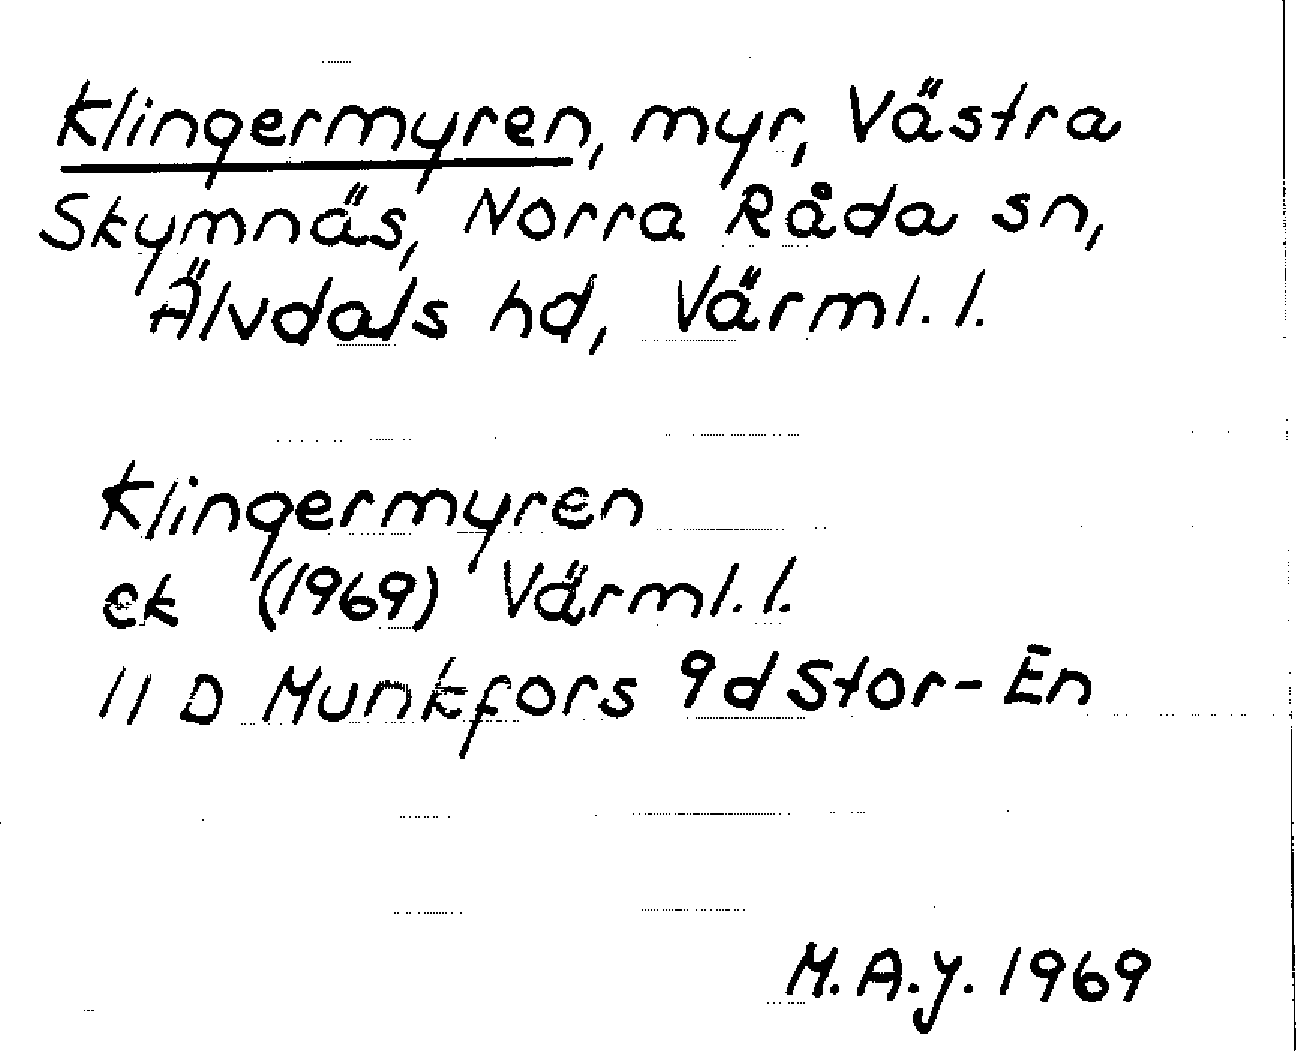 Klingermyren, myr, Västra
Skymnäs, Norra Råda sn,
Älvdals hd, Värml. l.
Klingermyren
ek (1969) Värml. l.
11 D Munkfors 9d Stor-En
M.A.y. 1969